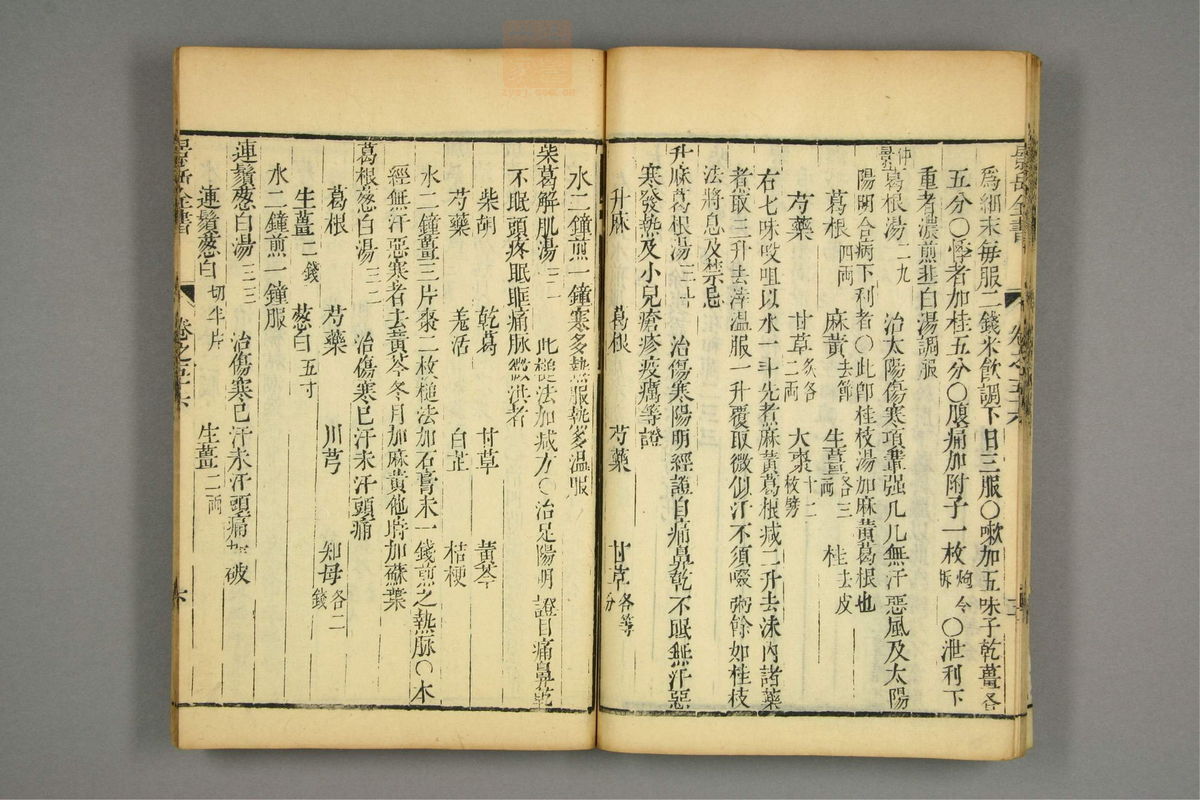 爲細末每服二錢米飲調下日三服〇嗽加五味子乾薑各
五分〇悸者加桂五分〇腹痛加附子一枚炮令拆〇泄利下
重者濃煎韭白湯調服
仲景葛根湯二九　治太陽傷寒項背强几几無汗惡風及太陽
陽明合病下利者〇此卽桂枝湯加麻黄葛根也
葛根四両　麻黄去節　生薑各三両　桂去皮
芍藥　甘草炙各二両　大棗十二枚劈
右七味㕮咀以水一斗先煮麻黄葛根減二升去沫内諸藥
煮取三升去滓温服一升覆取微似汗不須啜粥餘如桂枝
法將息及禁忌
升麻葛根湯三十　治傷寒陽明經證目痛鼻乾不眠無汗惡
寒發熱及小兒瘡疹疫癘等證
升麻　葛根　芍藥　甘草各等分
水二鐘煎一鐘寒多熱服熱多温服
柴葛解肌湯三一　此槌法加减方〇治足陽明證目痛鼻乾
不眠頭疼眼眶痛脉微洪者
柴胡　乾葛　甘草　黄芩
芍藥　羗活　白芷　桔梗
水二鐘薑三片棗二枚槌法加石膏末一錢煎之熱服〇本
經無汗惡寒者去黄芩冬月加麻黄他時加蘇葉
葛根葱白湯三二　治傷寒已汗未汗頭痛
葛根　芍藥　川芎　知母各二錢
生薑二錢　葱白五寸
水二鐘煎一鐘服
連鬚葱白湯三三　治傷寒已汗未汗頭痛如破
連鬚葱白切半斤　生薑二両
景岳全書　卷之五十六　六